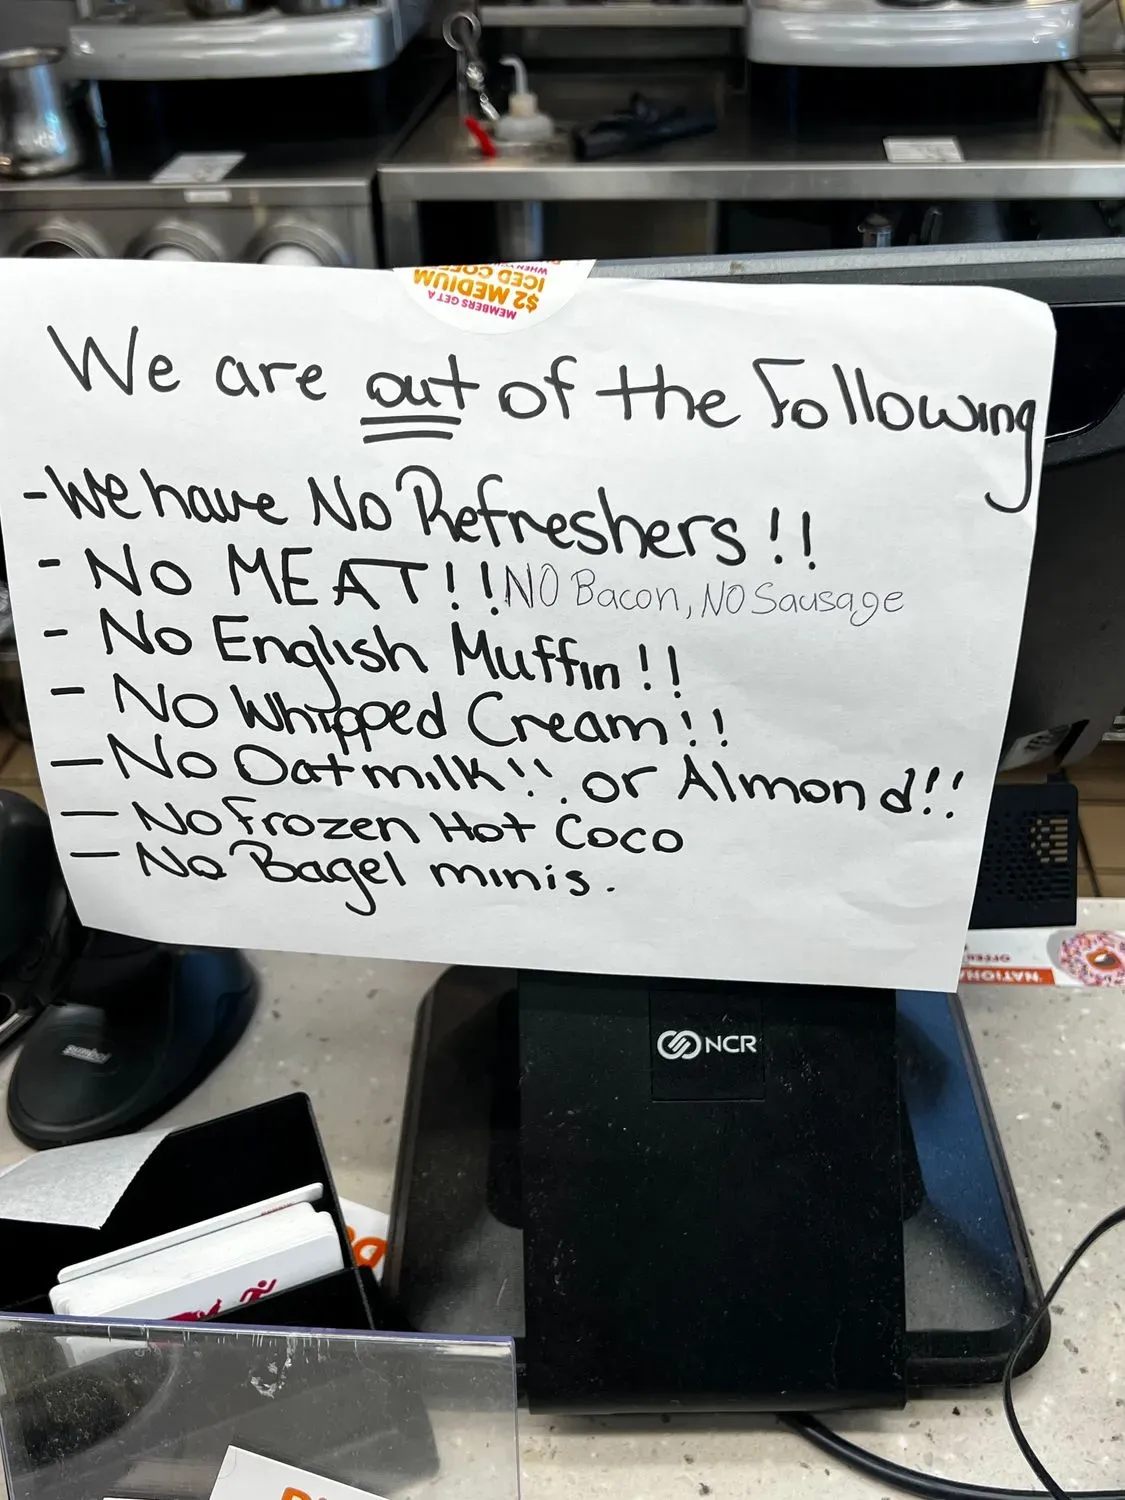 MEMBERS GET A
$2 MEDIUM
We are out of the Following
- We have No Refreshers!!
- No MEAT!! NO Bacon, NO Sausage
- No English Muffin!!
- No Whipped Cream!!
- No Oatmilk!! or Almond!!
- No Frozen Hot Coco
- No Bagel minis.
OFFER
NATION
NCR
symbol